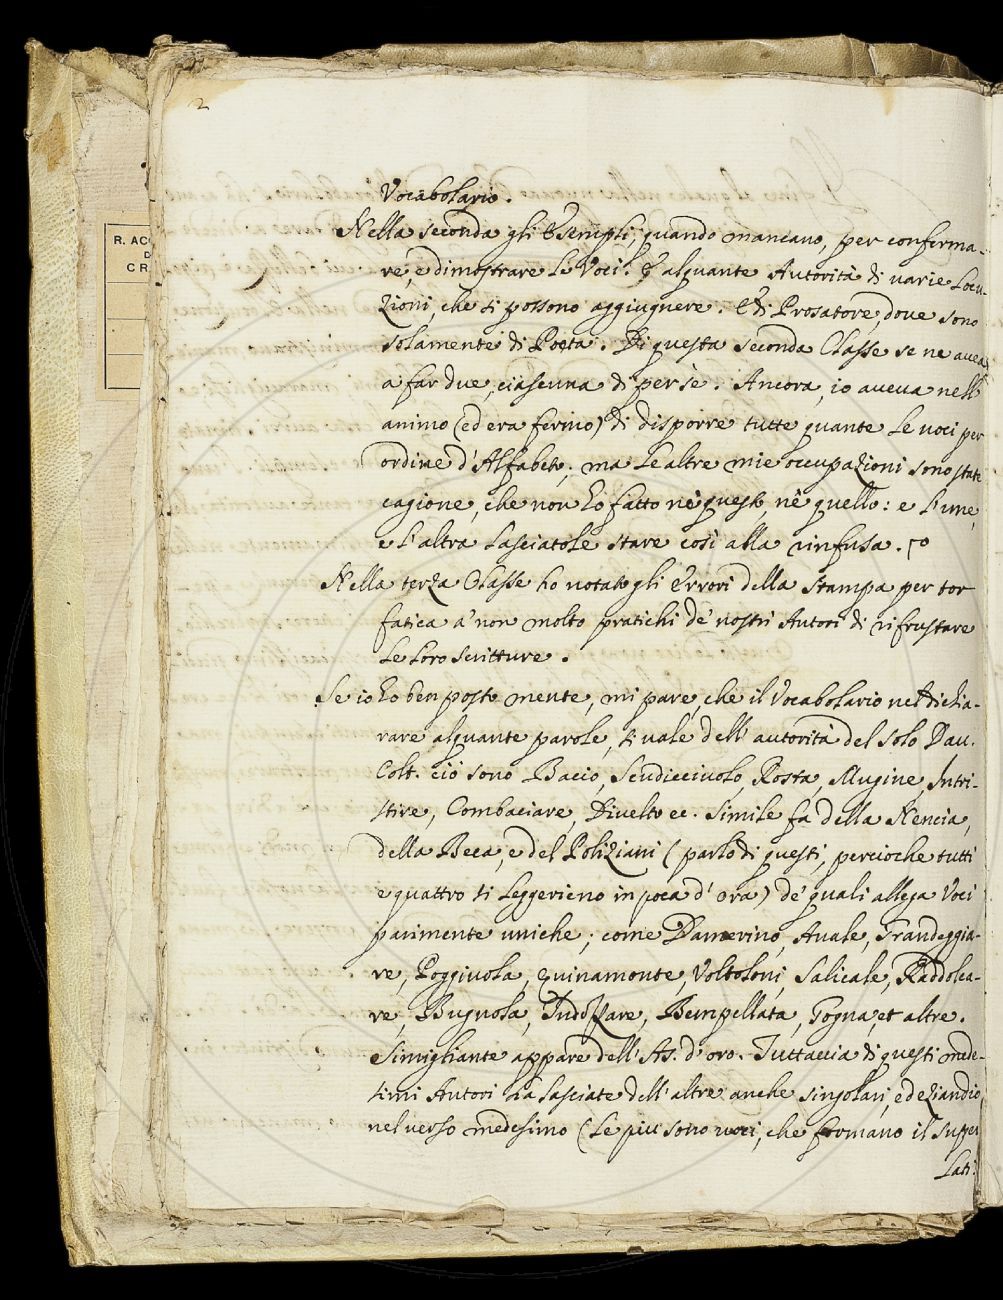 2
R. AC
D
C R
Vocabolario.
Nella seconda gli Esempli, quando mancano, per conferma-
re, e dimostrare le Voci. E alquante Autorità di varie Locu-
zioni, che si possono aggiugnere. E di Prosatore, dove sono
solamente di Poeta. Di questa seconda Classe se ne avea
a far due, ciascuna di per sè. Ancora, io aveva nell'
animo (ed era fermo) di disporre tutte quante le voci per
ordine d'Alfabeto; ma le altre mie occupazioni sono state
cagione, che non ho fatto nè questo, nè quello: e l'une,
e l'altra lasciatole stare così alla rinfusa.
Nella terza Classe ho notato gli Errori della Stampa per tor
fatica a' non molto pratichi de' nostri Autori di rifrustare
le loro scritture.
Se io ho ben posto mente, mi pare, che il Vocabolario nel dichia-
rare alquante parole, si vale dell'autorità del solo Dav.
Colt. ciò sono Bacio, Scudicciuolo, Rosta, Mugine, Intri-
stire, Combaciare, Divelto ec. Simile fa della Nencia,
della Beca, e del Poliziani (parlo di questi, percioche tutti
e quattro si leggerieno in poca d'ora) de' quali allega Voci
parimente uniche; come Damerino, Avale, Grandeggia-
re, Poggiuola, Quinamonte, Voltoloni, Salicale, Raddolca-
re, Bugnola, Rempellata, Gogna, et altre.
Simigliante appare dell'As. d'oro. Tuttavia di questi mede-
simi Autori ha lasciate dell'altre anche singolari, ed eziandio
nel verso medesimo (le più sono voci, che formano il super
lati: